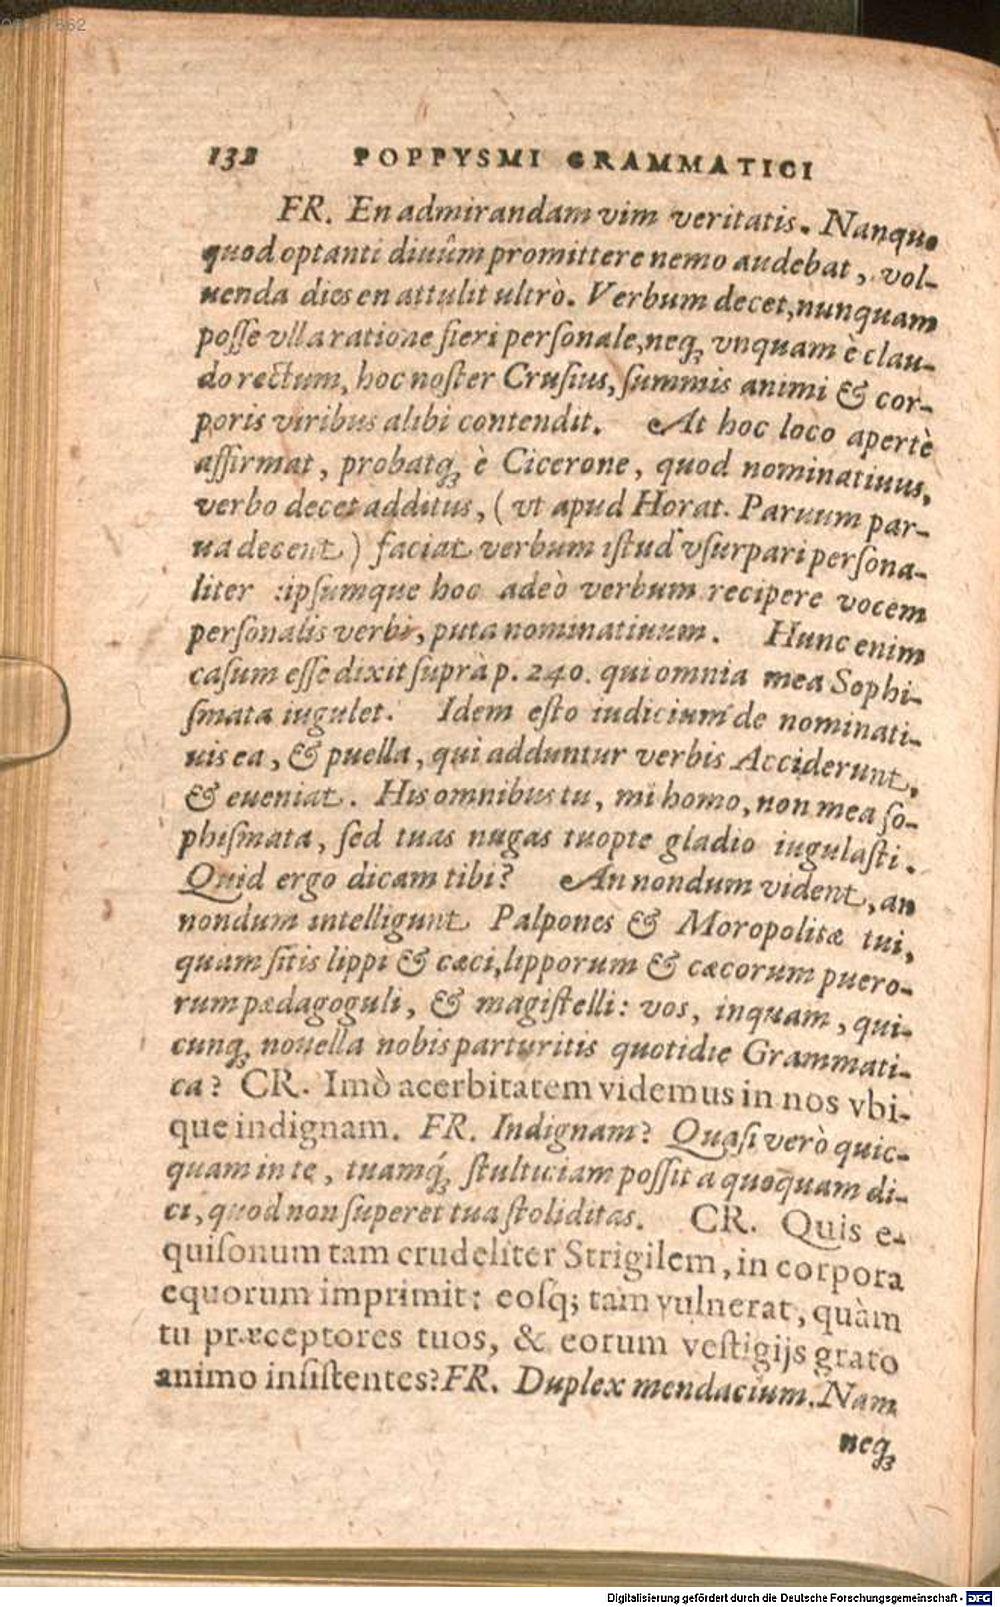 132 POPPYSMI GRAMMATICI
FR. En admirandam vim veritatis. Nanque
quod optanti diuûm promittere nemo audebat, vol-
uenda dies en attulit ultrò. Verbum decet, nunquam
posſe vlla ratione fieri perſonale, neqꝫ vnquam è clau-
do rectum, hoc noſter Cruſius, ſummis animi & cor-
poris viribus alibi contendit. At hoc loco apertè
aſſirmat, probatqꝫ è Cicerone, quod nominatiuus,
verbo decet additus, (vt apud Horat. Paruum par-
ua decent) faciat verbum iſtud vſurpari perſona-
liter: ipſumque hoc adeò verbum recipere vocem
perſonalis verbi, puta nominatiuum. Hunc enim
caſum eſſe dixit ſuprà p. 240. qui omnia mea Sophi-
ſmata iugulet. Idem eſto iudicium de nominati-
uis ea, & puella, qui adduntur verbis Acciderunt,
& eueniat. His omnibus tu, mi homo, non mea ſo-
phiſmata, ſed tuas nugas tuopte gladio iugulaſti.
Quid ergo dicam tibi? An nondum vident, an
nondum intelligunt Palpones & Moropolitæ tui,
quam ſitis lippi & cæci, lipporum & cæcorum puero-
rum pædagoguli, & magiſtelli: vos, inquam, qui-
cunqꝫ nouella nobis parturitis quotidie Grammati-
ca? CR. Imò acerbitatem videmus in nos vbi-
que indignam. FR. Indignam? Quaſi verò quic-
quam in te, tuamq́ꝫ ſtultitiam poſſit a quoquam di-
ci, quod non ſuperet tua ſtoliditas. CR. Quis e-
quiſonum tam crudeliter Strigilem, in corpora
equorum imprimit: eoſq; tam vulnerat, quàm
tu præceptores tuos, & eorum veſtigijs grato
animo inſiſtentes? FR. Duplex mendacium. Nam
neqꝫ
Digitalisierung gefördert durch die Deutsche Forschungsgemeinschaft - DFG